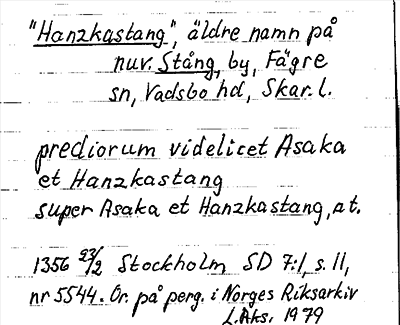 "Hanzkastang", äldre namn på
nuv. Stång, by, Fägre
sn, Vadsbo hd, Skar. l.
prediorum videlicet Asaka
et Hanzkastang
super Asaka et Hanzkastang,
1356 23/2 Stockholm SD 7:1, s. 11,
nr 5544. Or. på perg. i Norges Riksarkiv
L. Aks. 1979